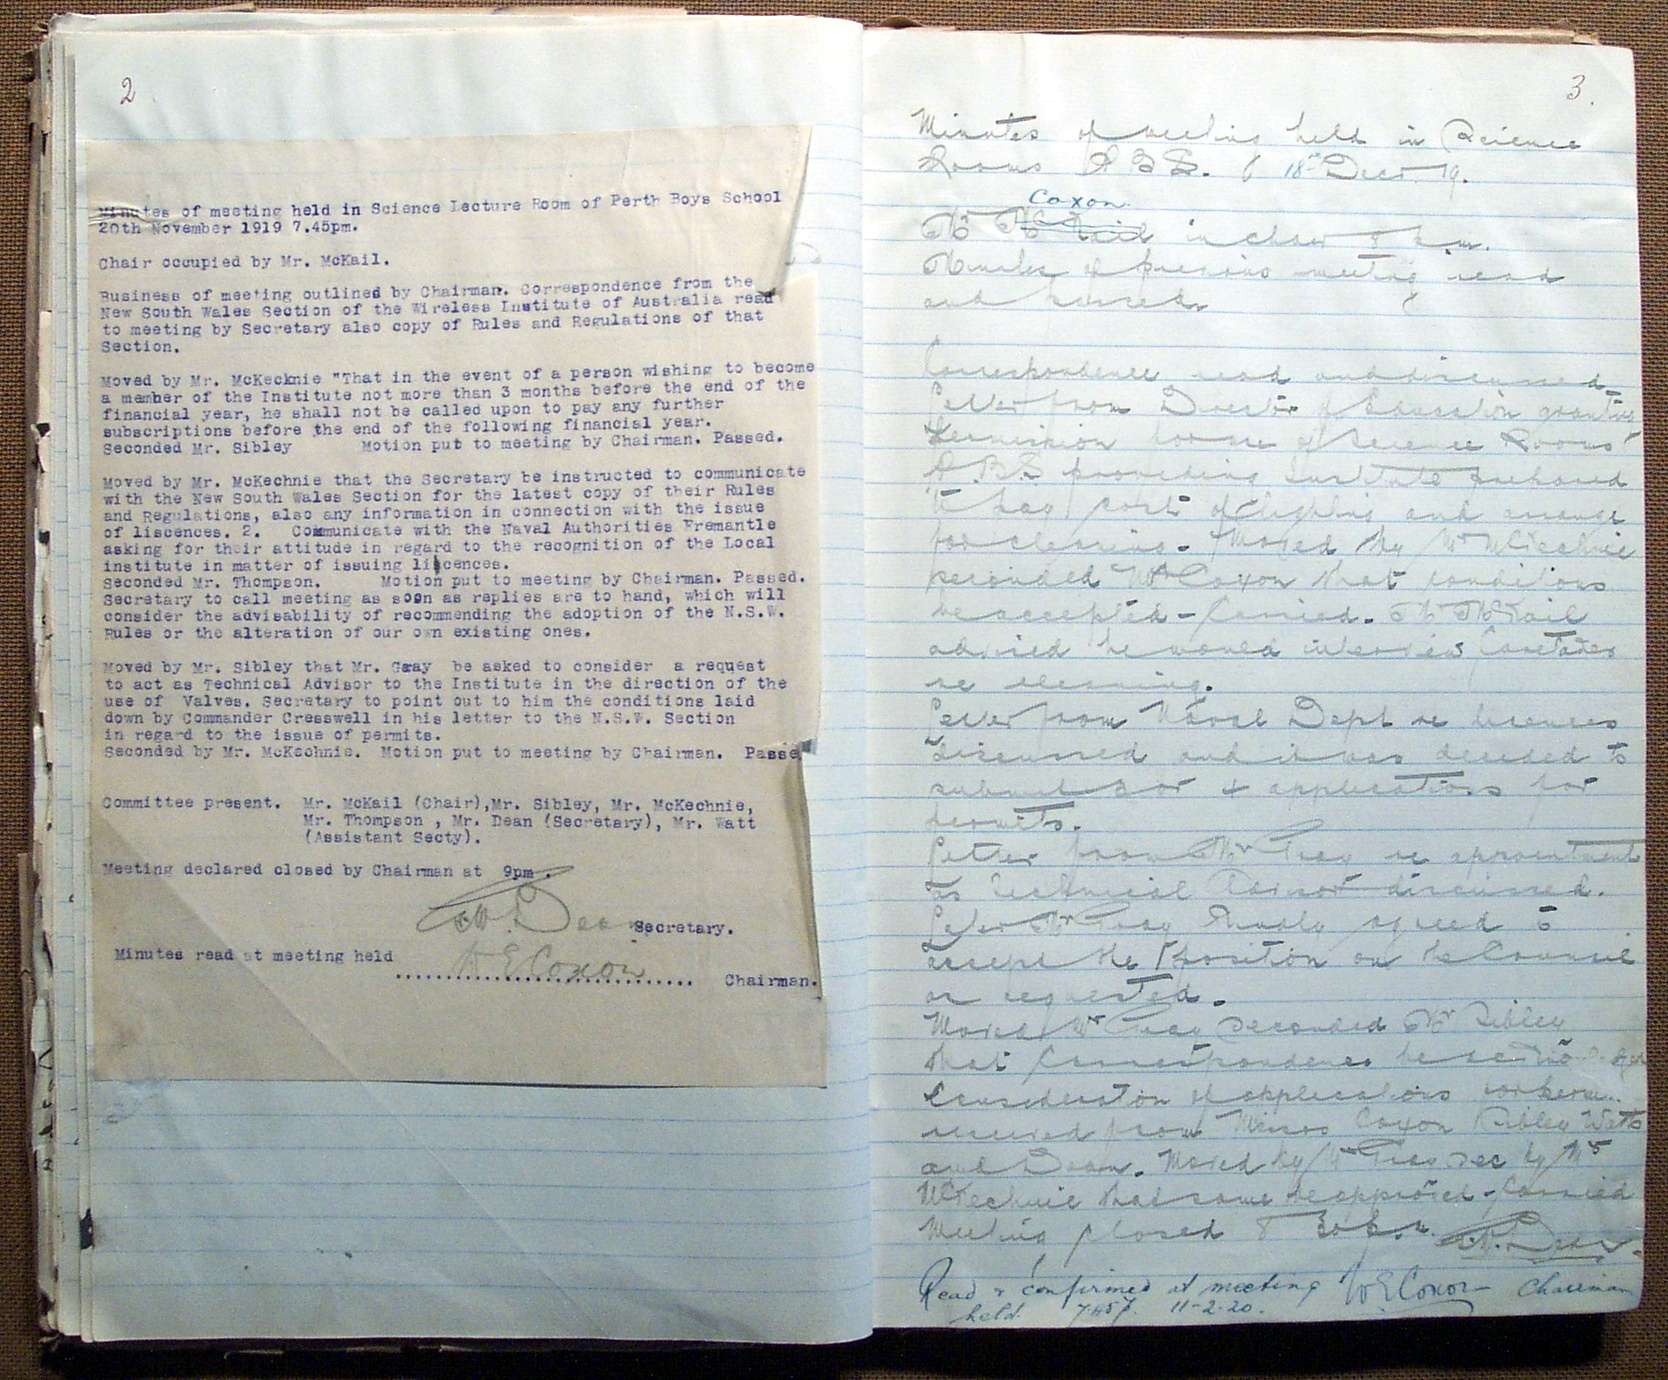 2
Minutes of meeting held in Science Lecture Room of Perth Boys School
20th November 1919 7.45pm.
Chair occupied by Mr. McKail.
Business of meeting outlined by Chairman. Correspondence from the
New South Wales Section of the Wireless Institute of Australia read
to meeting by Secretary also copy of Rules and Regulations of that
Section.
Moved by Mr. McKecknie "That in the event of a person wishing to become
a member of the Institute not more than 3 months before the end of the
financial year, he shall not be called upon to pay any further
subscriptions before the end of the following financial year.
Seconded Mr. Sibley Motion put to meeting by Chairman. Passed.
Moved by Mr. McKechnie that the Secretary be instructed to communicate
with the New South Wales Section for the latest copy of their Rules
and Regulations, also any information in connection with the issue
of liscences. 2. Communicate with the Naval Authorities Fremantle
asking for their attitude in regard to the recognition of the Local
institute in matter of issuing liscences.
Seconded Mr. Thompson. Motion put to meeting by Chairman. Passed.
Secretary to call meeting as soon as replies are to hand, which will
consider the advisability of recommending the adoption of the N.S.W.
Rules or the alteration of our own existing ones.
Moved by Mr. Sibley that Mr. Gray be asked to consider a request
to act as Technical Advisor to the Institute in the direction of the
use of Valves. Secretary to point out to him the conditions laid
down by Commander Cresswell in his letter to the N.S.W. Section
in regard to the issue of permits.
Seconded by Mr. McKechnie. Motion put to meeting by Chairman. Passe
Committee present. Mr. McKail (Chair),Mr. Sibley, Mr. McKechnie,
Mr. Thompson , Mr. Dean (Secretary), Mr. Watt
(Assistant Secty).
Meeting declared closed by Chairman at 9pm .
Dean Secretary.
Minutes read at meeting held
W E Coxon Chairman.
3.
Minutes of meeting held in Science
Rooms P B S. 18th Decr. 19.
Coxon
Mr McKail in chair 8 p.m.
Minutes of previous meeting read
and passed.
Correspondence read and discussed.
Letter from Director of Education granting
permission for use of Science Rooms
P.B.S providing Institute prepared
to pay cost of lighting and arrange
for cleaning. Moved by Mr McKechnie
seconded Mr Coxon that conditions
be accepted - Carried. Mr McKail
advised he would interview Caretaker
re cleaning.
Letter from Naval Dept re licences
discussed and it was decided to
submit 3 or 4 applications for
permits.
Letter from Mr Gray re appointment
as Technical Advisor discussed.
Later Mr Gray kindly agreed to
accept the position on the Council
as requested.
Moved Mr Gray seconded Mr Sibley
that Correspondence be
Consideration of applications for
received from Messrs Coxon Sibley Watt
and Dean. Moved by Mr Gray sec by Mr
McKechnie that same be approved - Carried
Meeting closed 8 30 p.m. Dean
Read & confirmed at meeting W E Coxon Chairman
held 11-2-20.